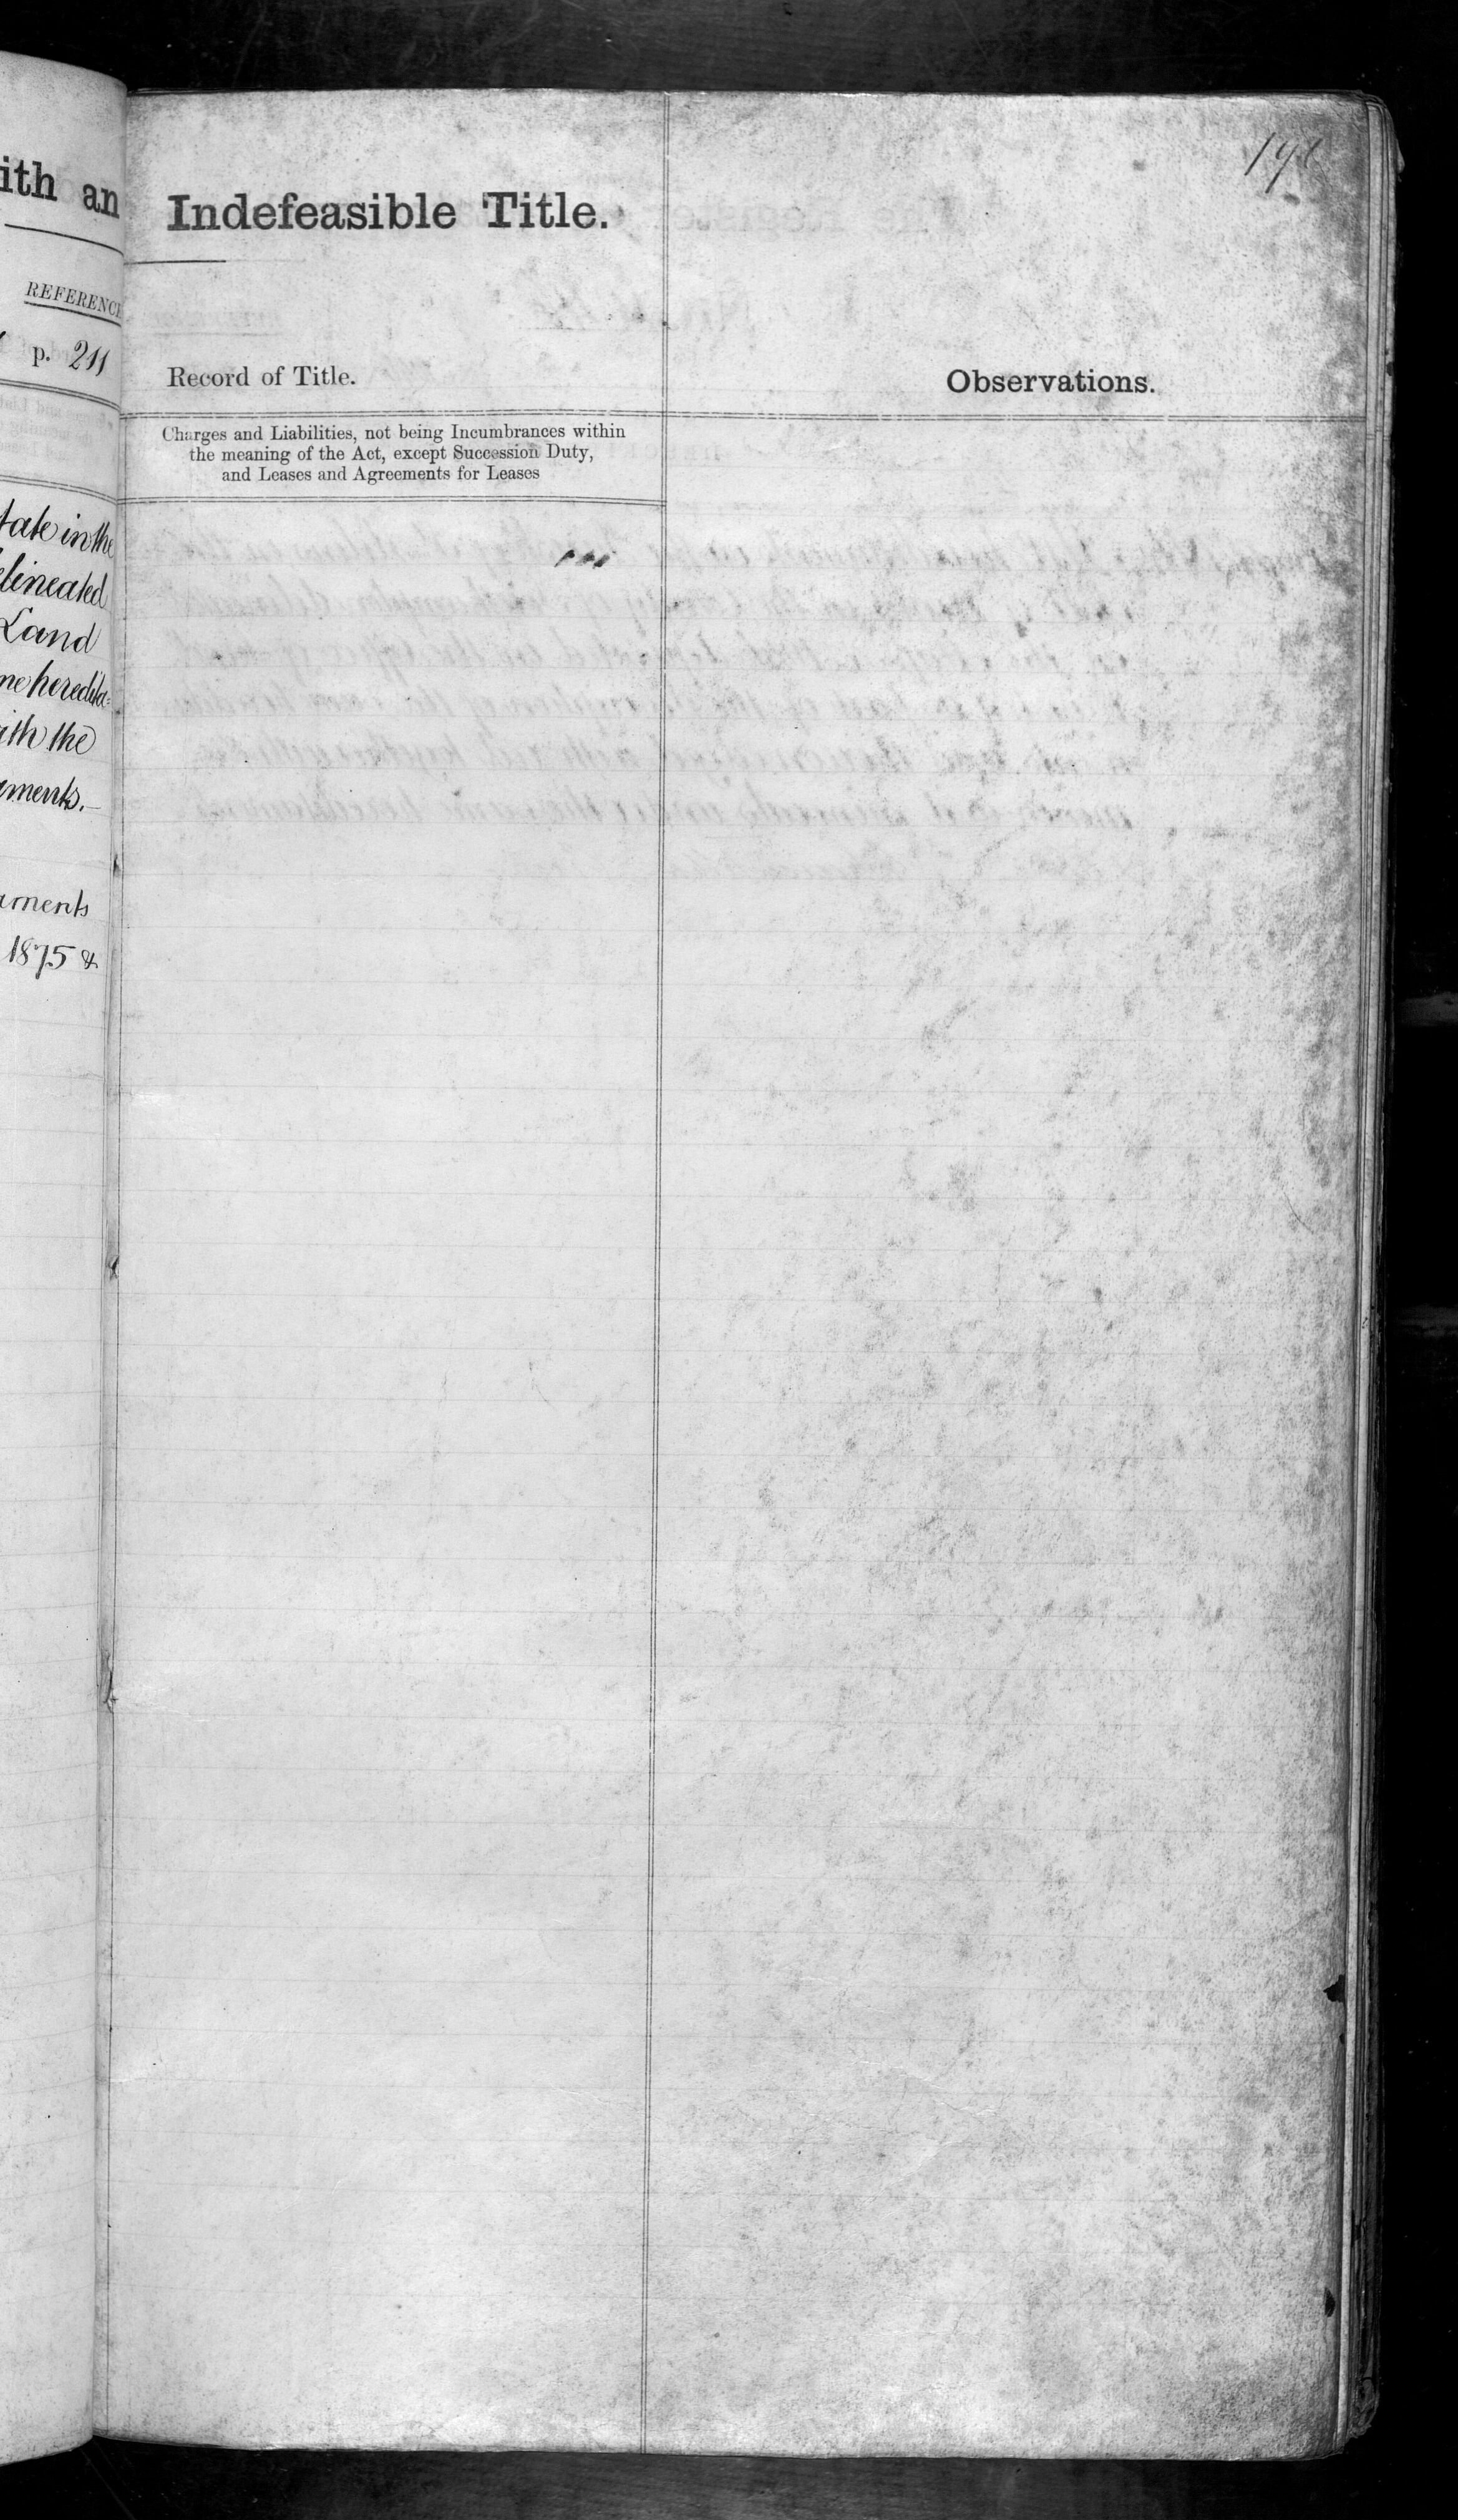 ith an
REFERENCE
p. 211
tate in the
elineated
Land
me heredita=
ith the
aments.—
aments
1875 &
Indefeasible Title.
Record of Title.
Observations.
Charges and Liabilities, not being Incumbrances within
the meaning of the Act, except Succession Duty,
and Leases and Agreements for Leases